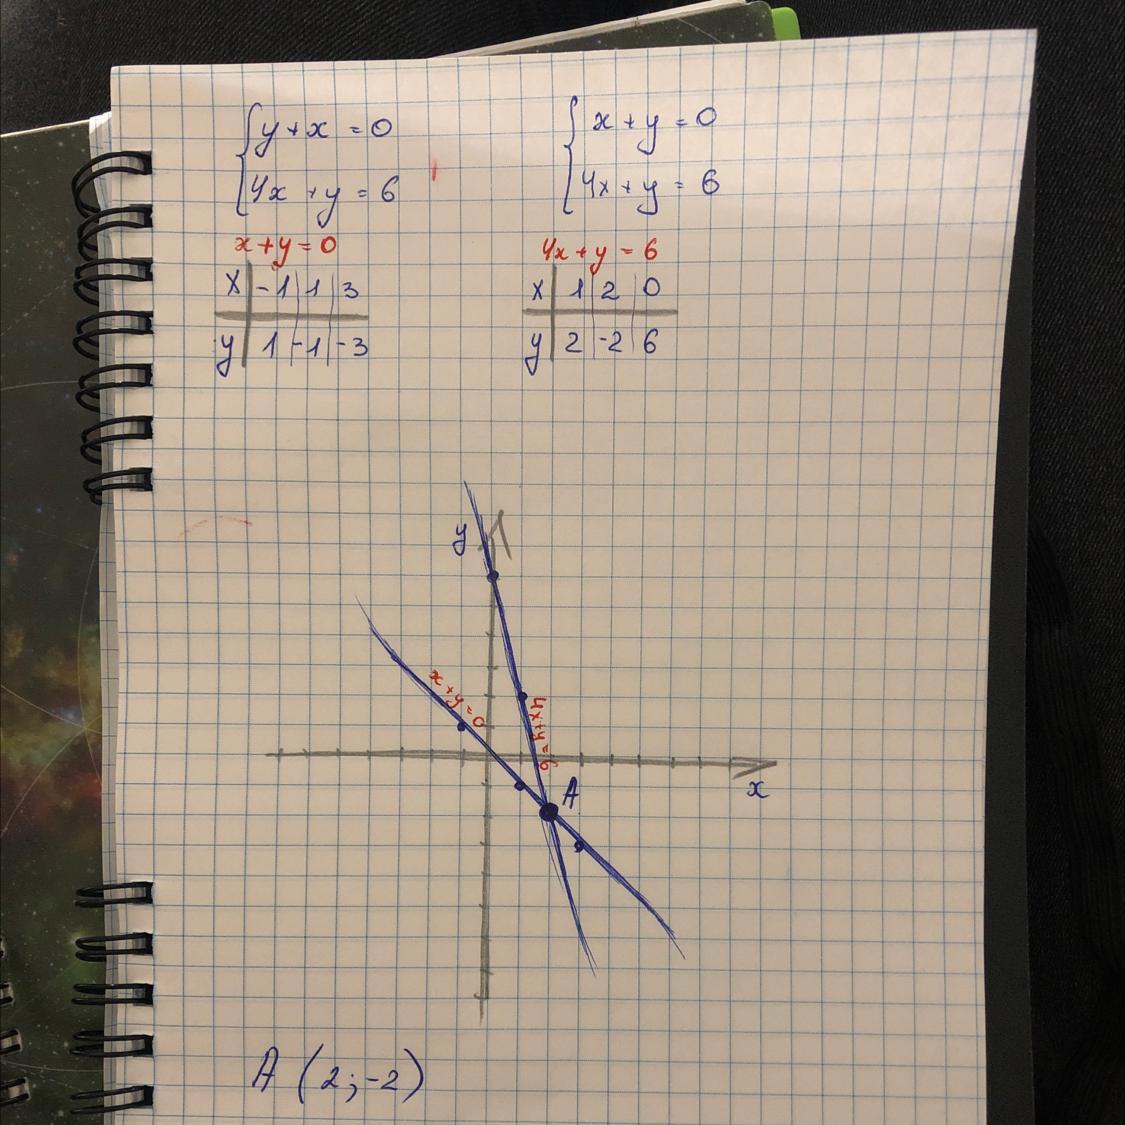 y + x = 0
4x + y = 6
x + y = 0
4x + y = 6
x + y = 0
x | -1 | 1 | 3
y | 1 | -1 | -3
4x + y = 6
x | 1 | 2 | 0
y | 2 | -2 | 6
y
x + y = 0
4x + y = 6
x
A
A (2; -2)